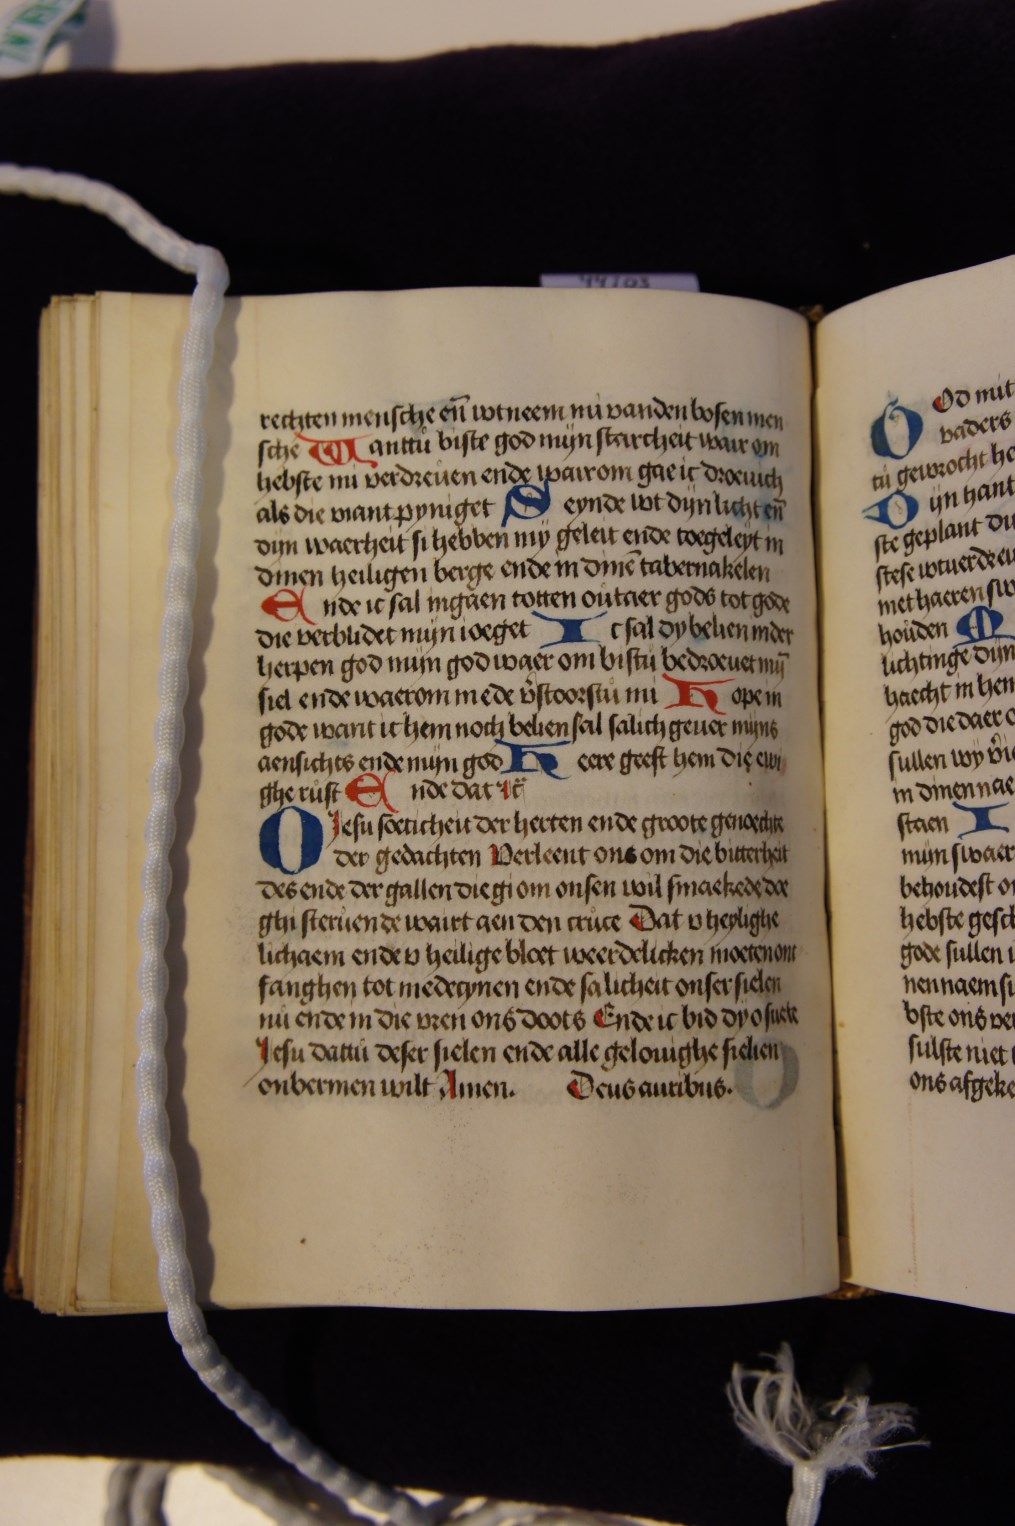 rechten mensche en̄ wtneem mi vanden bosen men
sche Want tu biste god mijn starcheit wair om
hebste mi verdreuen ende wairom gae ic droeuich
als die viant pyniget Seynde wt dijn licht en̄
dijn waerheit si hebben my geleit ende toegeleyt in
dinen heiligen berge ende in dinē tabernakelen
Ende ic sal ingaen totten outaer gods tot gode
die verblidet mijn ioeget Ic sal dy belien inder
herpen god mijn god waer om bistu bedroeuet mijn
siel ende waerom mede v̄stoorstu mi Hope in
gode want ic hem noch belien sal salich geuer mijns
aensichts ende mijn god Heere geeft hem die ewi
ghe rust Ende dat
O Jesu soeticheit der herten ende groote genoechte
der gedachten Verleent ons om die bitterheit
des ende der gallen die gi om onsen wil smaekede doe
ghi steruende wairt aen den cruce Dat v heylighe
lichaem ende v heilige bloet weerdelicken moeten ont
fanghen tot medecynen ende salicheit onser sielen
nu ende in die vren ons doots Ende ic bid dy o suete
Jesu dattu deser sielen ende alle gelouighe sielien
onbermen wilt Amen. Deus auribus.
44703
God mit
vaders
tu gewrocht he
Dijn hant
ste geplant du
met haeren sw
houden
lichtinge dijn
haecht in hem
god die daer
sullen wy
in dinen nae
staen I
mijn swaer
behoudest
hebste gesc
gode sullen
nen naem
bste ons ver
sulste niet
ons afgeke